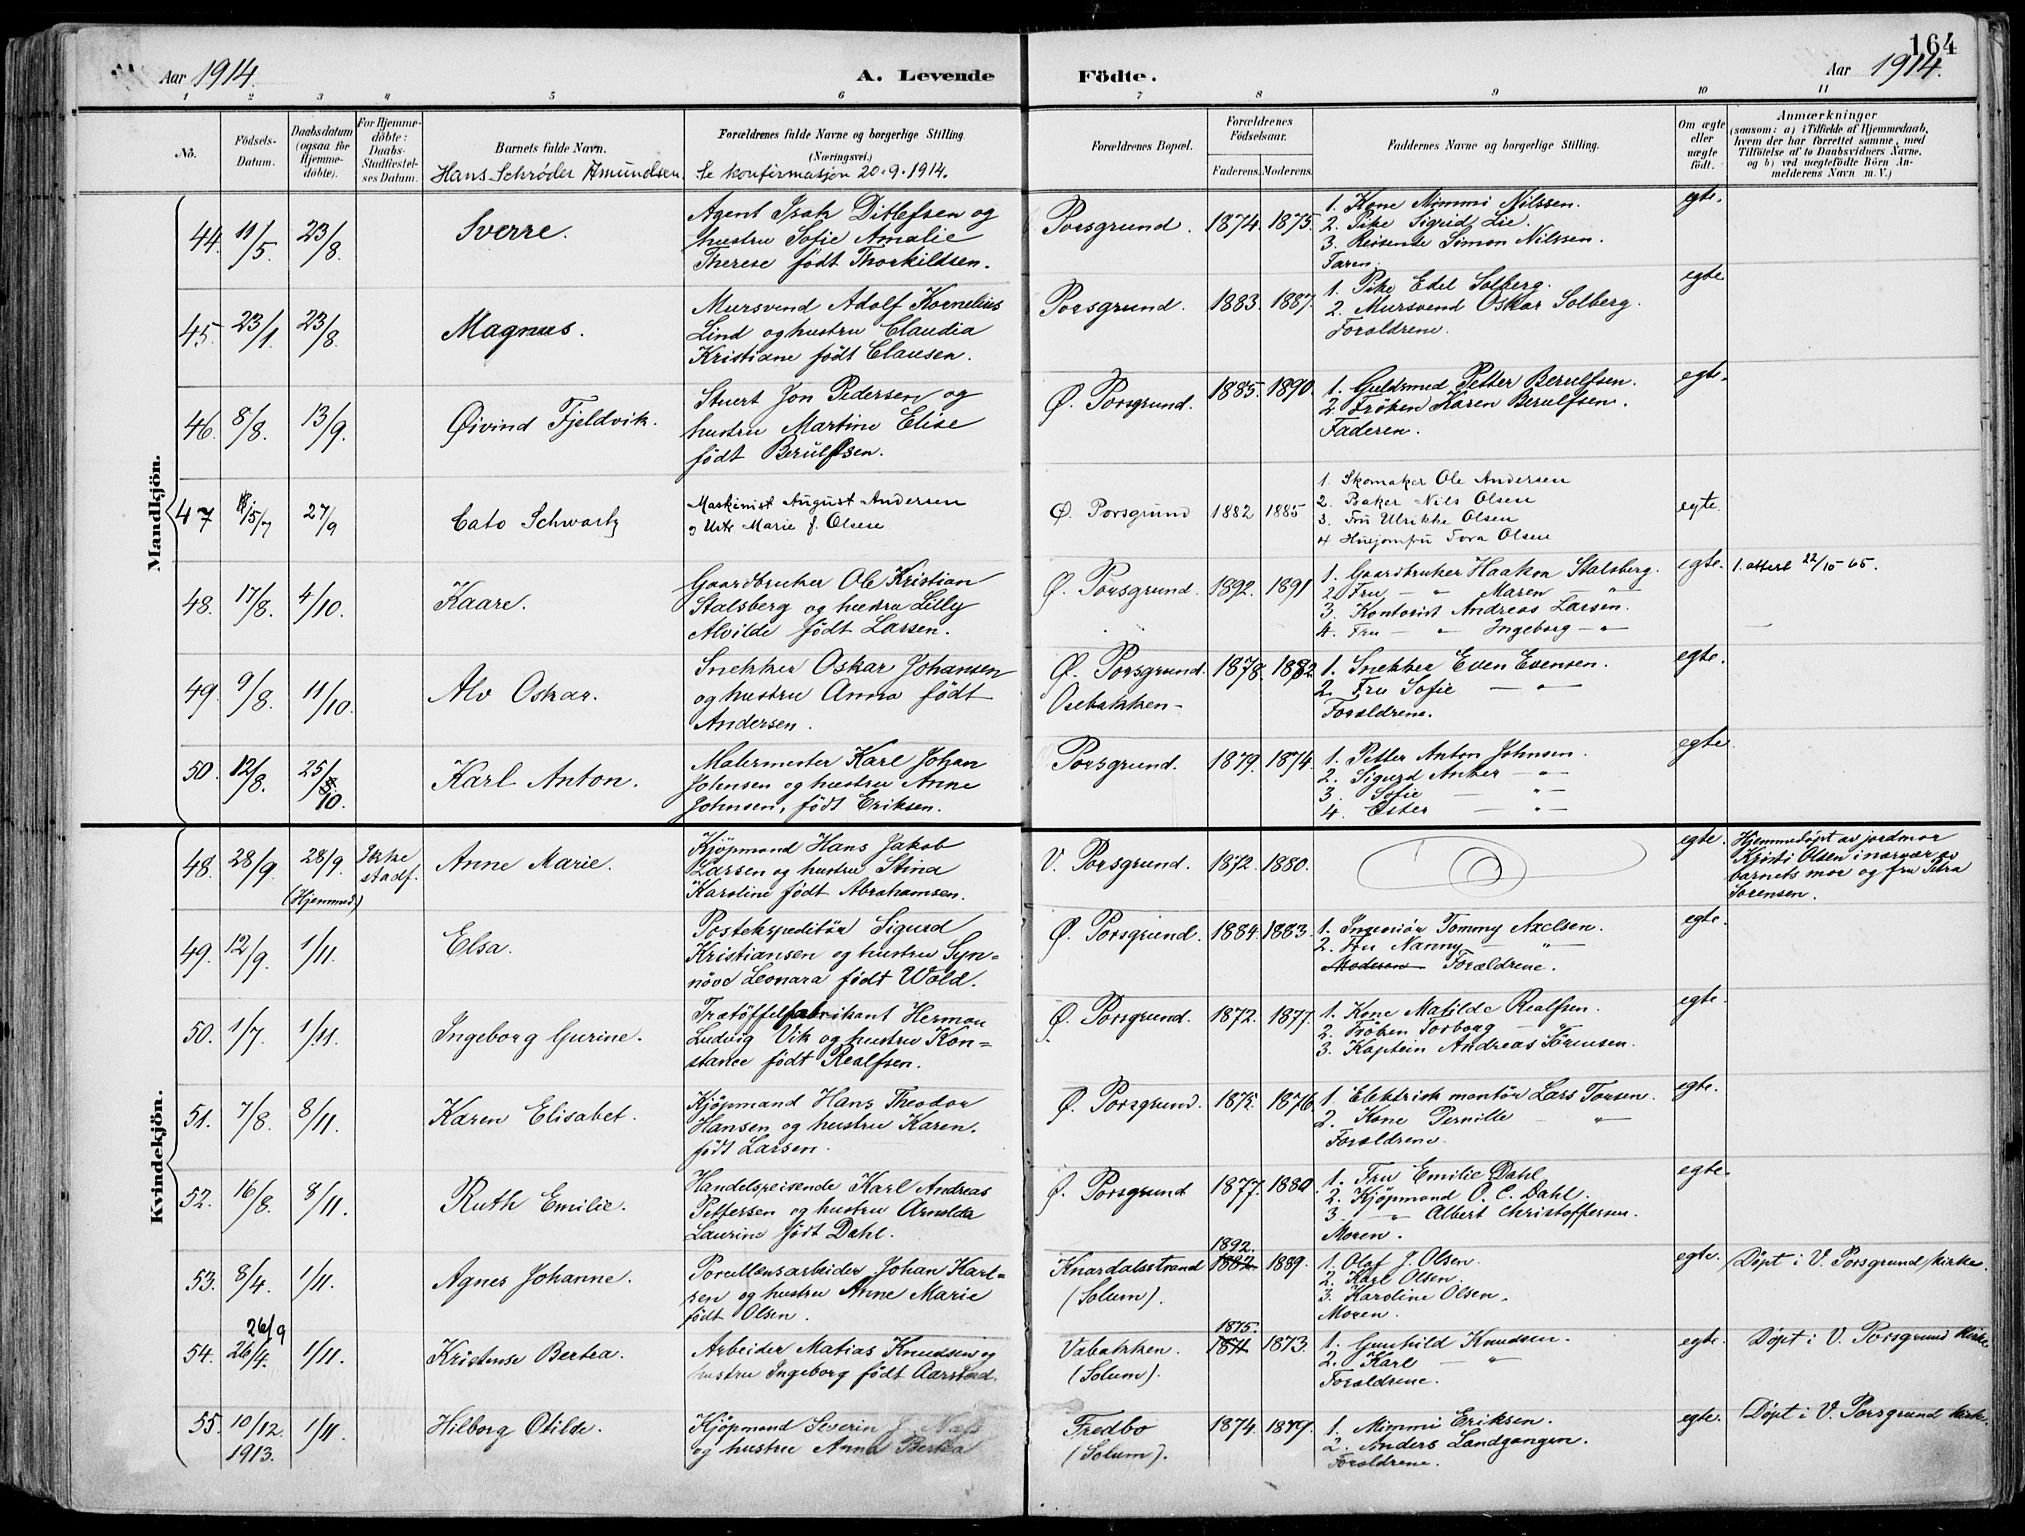 164
Aar 1914.
A. Levende Födte.
Aar 1914.
1 2 3 4 5 6 7 8 9 10 11
No.
Födsels-Datum.
Daabsdatum (ogsaa for Hjemme-döbte).
For Hjemme-döbte: Daabs-Stadfæstel-ses Datum.
Barnets fulde Navn.
Forældrenes fulde Navne og borgerlige Stilling. (Næringsvei.)
Forældrenes Bopæl.
Forældrenes Födselsaar.
Faderens. Moderens.
Faddernes Navne og borgerlige Stilling.
Om ægte eller uægte födt.
Anmærkninger
(saasom: a) i Tilfælde af Hjemmedaab,
hvem der har forrettet samme, med
Tilföielse af to Daabsvidners Navne.
og b) ved uægtefödte Börn An-
melderens Navn m. V.)
Hans Schrøder Amundsen, Se konfirmasjon 20.9.1914.
Mandkjön.
44. 11/5. 23/8. Sverre.
Agent Isak Ditlefsen og
hustru Sofie Amalie
Therese født Thorkildsen.
Porsgrund. 1874. 1875.
1. Kone Mimmi Nilssen.
2. Pike Sigrid Lie.
3. Reisende Simon Nilssen.
Faren.
egte.
45. 23/1. 23/8. Magnus.
Mursvend Adolf Kornelius
Lind og hustru Claudia
Kristiane født Clausen.
Porsgrund. 1883. 1887.
1. Pike Edel Solberg.
2. Mursvend Oskar Solberg.
Forældrene.
egte
46. 8/8. 13/9. Øivind Fjeldvik.
Stuert Jon Pedersen og
hustru Martine Elise
født Berulfsen.
Ø. Porsgrund. 1885. 1890.
1. Guldsmed Petter Berulfsen.
2. Frøken Karen Berulfsen.
Faderen.
egte.
47 15/7 27/9 Cato Schwartz
Maskinist August Andersen
o Ustr Marie f. Olsen
Ø. Porsgrund 1882 1885
1. Skomaker Ole Andersen
2. Baker Nils Olsen
3. Fru Ulrikke Olsen
4. Husjomfru Tora Olsen
egte.
48. 17/8. 4/10. Kaare.
Gaardbruker Ole Kristian
Stalsberg og hustru Lilly
Alvilde født Larsen.
Ø. Porsgrund. 1892. 1891
1. Gaardbruker Haakon Stalsberg.
2. Fru — " Maren — "
3. Kontorist Andreas Larsen.
4. Fru — " Ingeborg — "
egte. 1. attest 22/10-65.
49. 9/8. 11/10. Alv Oskar.
Snekker Oskar Johansen
og hustru Anna født
Andersen.
Ø. Porsgrund.
Osebakken- 1878. 1882.
1. Snekker Even Evensen.
2. Fru Sofie — "
Forældrene.
egte.
50. 12/8. 25/10. Karl Anton.
Malermester Karl Johan
Johnsen og hustru Anne
Johnsen, født Eriksen.
Porsgrund. 1879. 1874.
1. Petter Anton Johnsen.
2. Sigurd Anker — "
3. Sofie — "
4. Ester — "
egte.
Kvindekjön.
48. 28/9. 28/9. (Hjemmed.) Ikke stadf. Anne Marie.
Kjøpmand Hans Jakob
Larsen og hustru Stina
Karoline født Abrahamsen.
V. Porsgrund. 1872. 1880.
egte.
Hjemmedøpt av jordmor
Kristi Olsen i nærvær av
barnets mor og fru Petra
Sørensen.
49. 12/9. 1/11. Elsa.
Postekspeditør Sigurd
Kristiansen og hustru Syn=
nøve Leonara født Wold.
Ø. Porsgrund. 1884. 1883.
1. Ingeniør Tommy Axelsen.
2. Fru Nanny — "
Moderen Forældrene.
egte.
50. 1/7. 1/11. Ingeborg Gurine.
Trætøffelfabrikant Herman
Ludvig Vik og hustru Kon=
stance født Realfsen.
Ø. Porsgrund. 1872. 1877.
1. Kone Matilde Realfsen.
2. Frøken Torborg — "
3. Kaptein Andreas Sørensen.
egte.
51. 7/8. 8/11. Karen Elisabet.
Kjøpmand Hans Theodor
Hansen og hustru Karen.
født Larsen.
Ø. Porsgrund. 1875. 1876.
1. Elektrisk montør Lars Torsen.
2. Kone Pernille — "
Forældrene.
egte.
52. 16/8. 8/11. Ruth Emilie.
Handelsreisende Karl Andreas
Pettersen og hustru Arnolda
Laurine født Dahl.
Ø. Porsgrund 1877. 1880.
1. Fru Emilie Dahl
2. Kjøpmand O. C. Dahl.
3. — " Albert Christoffersen.
Moren.
egte.
53. 8/4. 1/11. Agnes Johanne.
Porcellænsarbeider Johan Karl=
sen og hustru Anne Marie
født Olsen.
Knardalsstrand
(Solum). 1892. 1889.
1. Olaf J. Olsen.
2. Karl Olsen.
3. Karoline Olsen.
Moren.
egte. Døpt i V. Porsgrund kirke.
54. 26/9 26/4. 1/11. Kristense Bertea.
Arbeider Matias Knudsen og
hustru Ingeborg født Aarstad.
Vabakken.
(Solum). 1875. 1871 1873.
1. Gunhild Knudsen.
2. Karl — "
Forældrene.
egte. Døpt i V. Porsgrund kirke
55. 10/12. 1913. 1/11. Hilborg Otilde.
Kjøpmand Severin J. Næss
og hustru Anna Bertea
Fredbo
(Solum). 1874. 1879.
1. Mimmi Eriksen.
2. Anders Landgangen.
Forældrene.
egte. Døpt i V. Porsgrund kirke.